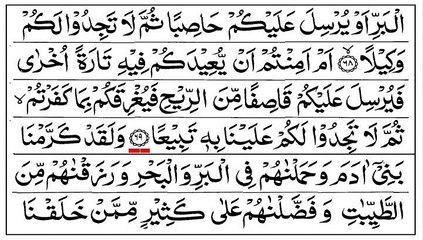 الْبَرِّ اَوْ يُرْسِلَ عَلَيْكُمْ حَاصِبًا ثُمَّ لَا تَجِدُوْا لَكُمْ
وَكِيْلًا ۙ‏﴿۶۸﴾ اَمْ اَمِنْتُمْ اَنْ يُّعِيْدَكُمْ فِيْهِ تَارَةً اُخْرٰى
فَيُرْسِلَ عَلَيْكُمْ قَاصِفًا مِّنَ الرِّيْحِ فَيُغْرِقَكُمْ بِمَا كَفَرْتُمْ ۙ
ثُمَّ لَا تَجِدُوْا لَكُمْ عَلَيْنَا بِهٖ تَبِيْعًا ﴿۶۹﴾ وَلَقَدْ كَرَّمْنَا
بَنِىْۤ اٰدَمَ وَحَمَلْنٰهُمْ فِى الْبَرِّ وَالْبَحْرِ وَرَزَقْنٰهُمْ مِّنَ
الطَّيِّبٰتِ وَفَضَّلْنٰهُمْ عَلٰى كَثِيْرٍ مِّمَّنْ خَلَقْنَا